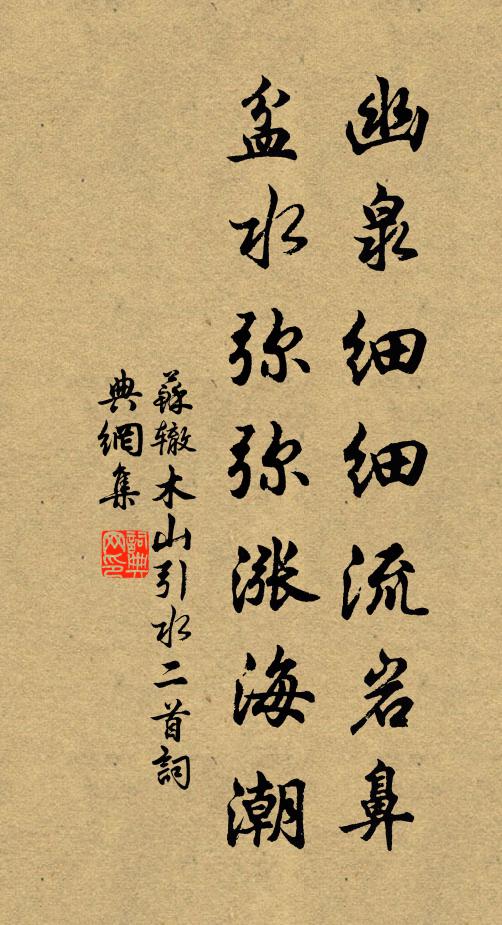 幽泉细细流岩鼻
盆水弥弥涨海潮
蘇辙木山引水二首詞
典網集
詞典网印